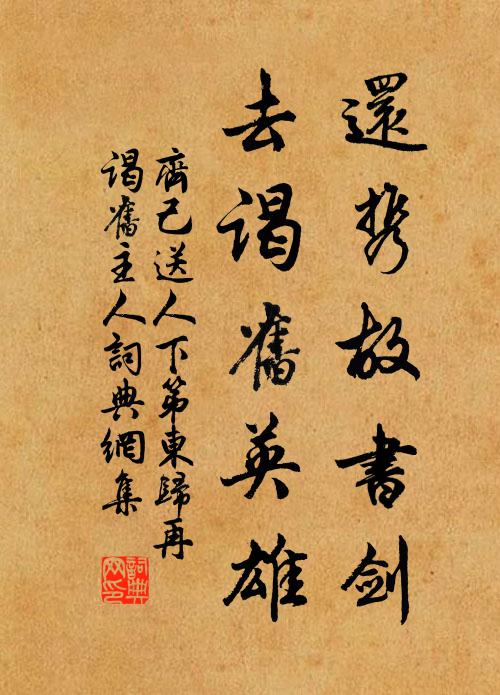 還携故書劍
去謁舊英雄
齊己送人下第東歸再
謁舊主人詞典網集
詞典
网印